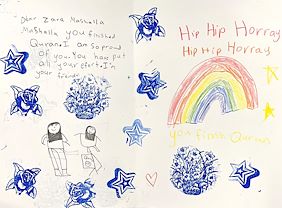 Dear Zara Mashalla
Mashalla you finished
Quran. I am so proud
Of you. You have put
all your efort. I'm
your friend
Hip Hip Horray
Hip Hip Horray
you finish Quran